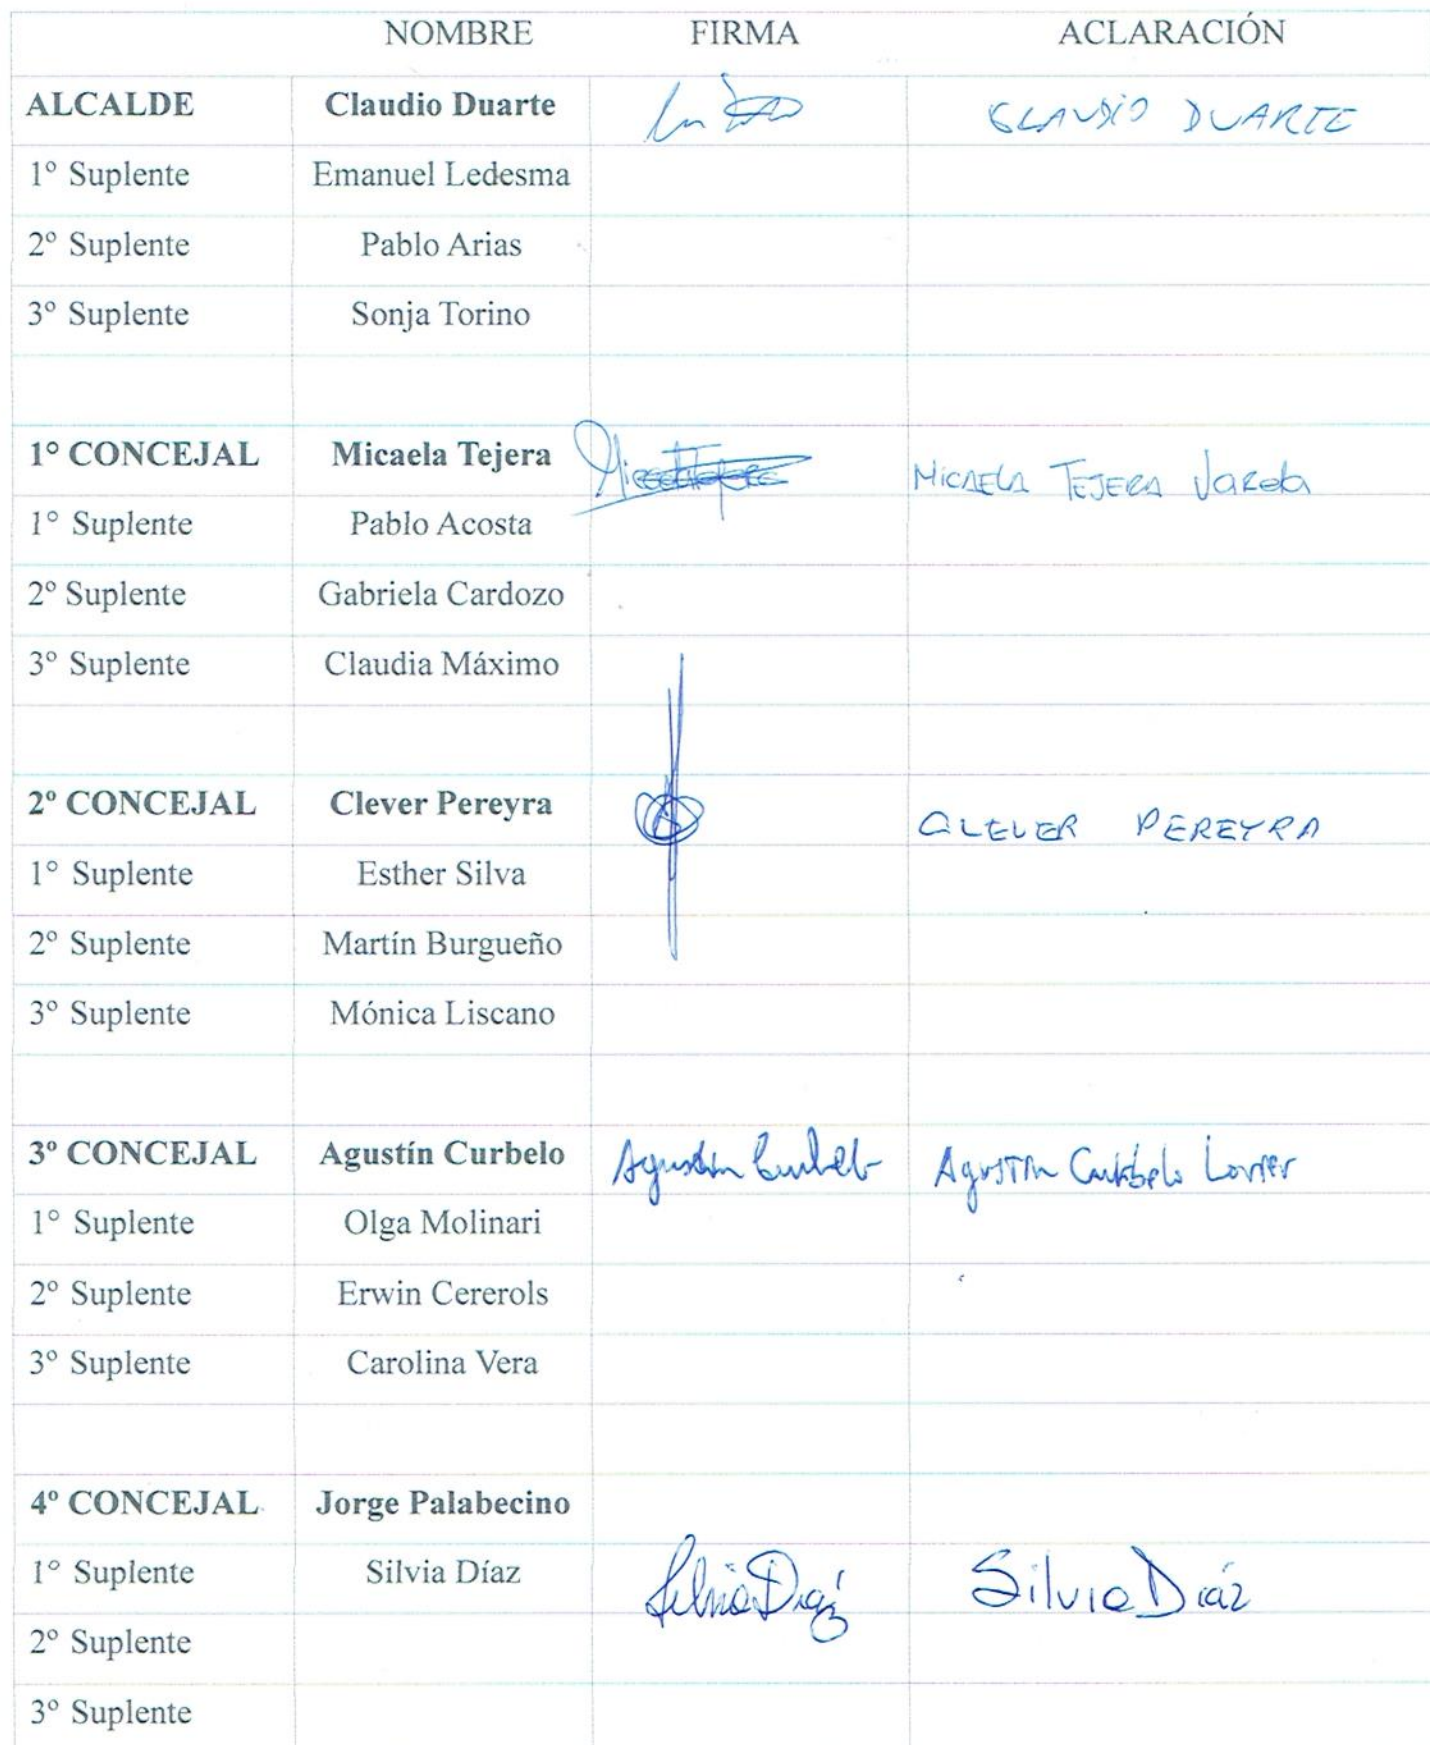 NOMBRE FIRMA ACLARACIÓN
ALCALDE Claudio Duarte CLAUDIO DUARTE
1º Suplente Emanuel Ledesma
2º Suplente Pablo Arias
3º Suplente Sonja Torino
1º CONCEJAL Micaela Tejera MICAELA TEJERA Varela
1º Suplente Pablo Acosta
2º Suplente Gabriela Cardozo
3º Suplente Claudia Máximo
2º CONCEJAL Clever Pereyra CLEVER PEREYRA
1º Suplente Esther Silva
2º Suplente Martín Burgueño
3º Suplente Mónica Liscano
3º CONCEJAL Agustín Curbelo Agustin Curbelo Agustin Curbelo
1º Suplente Olga Molinari
2º Suplente Erwin Cererols
3º Suplente Carolina Vera
4º CONCEJAL Jorge Palabecino
1º Suplente Silvia Díaz Silvia Díaz Silvia Díaz
2º Suplente
3º Suplente